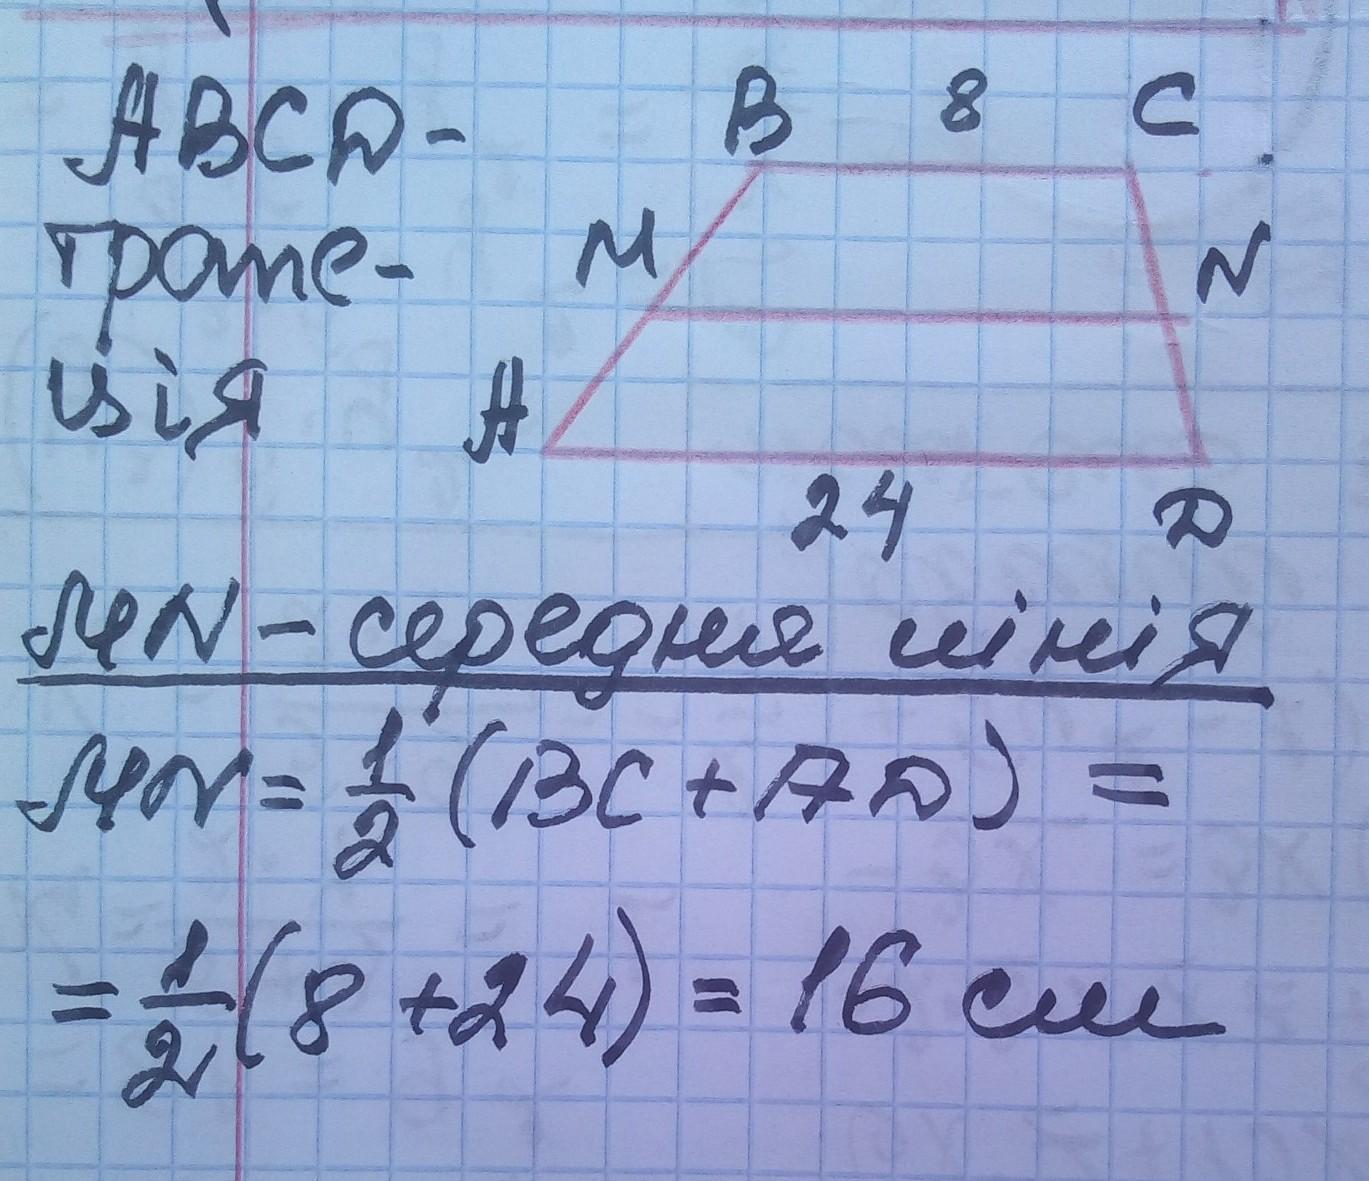 ABCD -
трапе-
ція
B 8 C
M N
A
24 D
MN - середня лінія
MN = 1/2 (BC + AD) =
= 1/2 (8 + 24) = 16 см